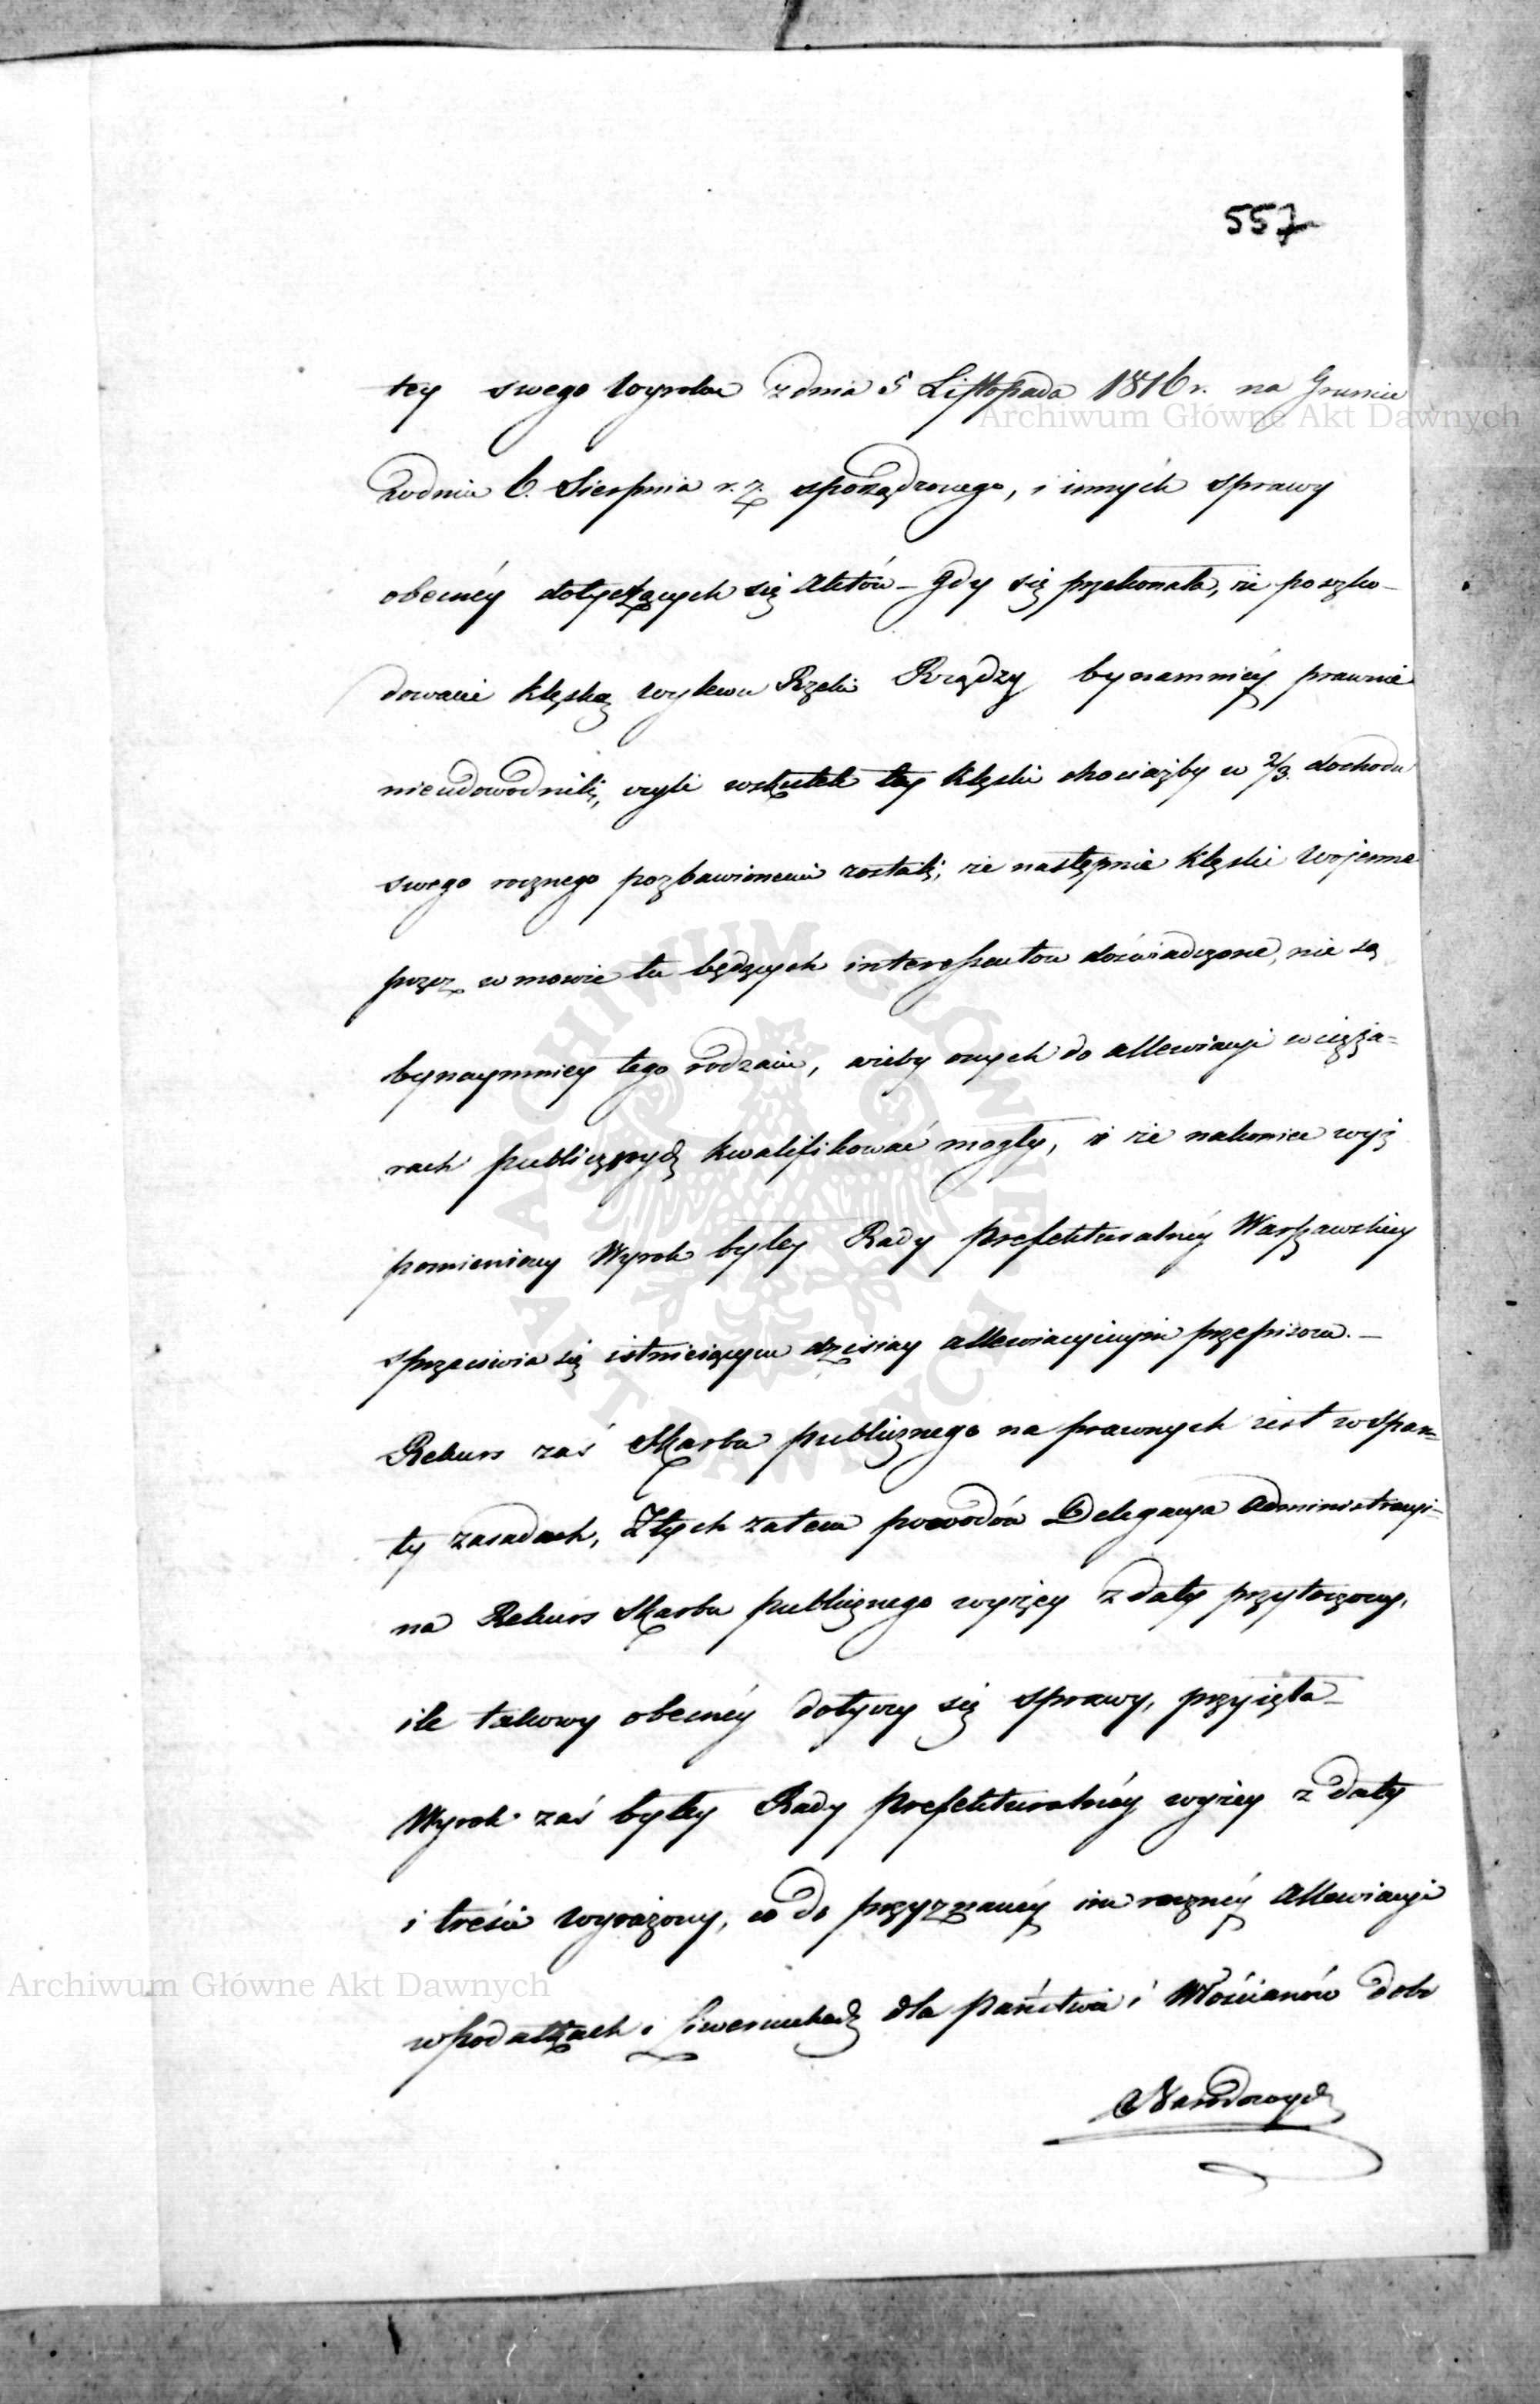 557
tey swego Wyroku z dnia 5 Listopada 1816 r. na Gruncie
Archiwum Główne Akt Dawnych
w dniu 6. Sierpnia r. z. sporządzonego, i innych sprawy
obecnéy dotyczących się Aktów – Gdy się przekonała, że poszko-
dowani klęską wylewu Rzeki Rządzy bynamniéy prawnie
nieudowodnili, czyli wskutek tey klęski chociażby w 2/3 dochodu
swego rocznego pozbawionemi zostali, że następnie klęski Wojenne
przez w mowie tu będących interessentów doświadczone, nie są
bynaymniey tego rodzaiu, ażeby onych do allewiacyi w cięża-
rach publicznych kwalifikować mogły, i że nakoniec wyż
pomieniony Wyrok byłey Rady Prefekturalnéy Warszawskiey
sprzeciwia się istnieiącym dzisiay allewiacyinym przepisom. –
Rekurs zaś Skarbu publicznego na prawnych iest wspar-
ty zasadach, Z tych zatem powodów Delegacya Administracyi-
na Rekurs Skarbu publicznego wyżey z daty przytoczony,
ile takowy obecnéy dotyczy się sprawy, przyięła –
Wyrok zaś byłey Rady Prefekturalnéy wyżey z daty
i treści wyrażony, co do przyznanéy im rocznéy Allewiacyi
Archiwum Główne Akt Dawnych
w podatkach i Liwerunkach dla państwa i Włościanów dobr
Narodowych
ARCHIWUM GŁÓWNE AKT DAWNYCH